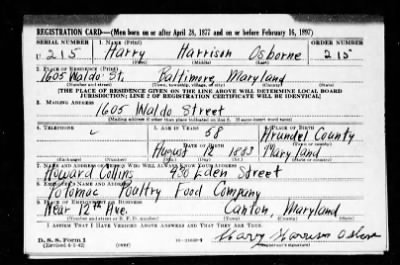 REGISTRATION CARD—(Men born on or after April 28, 1877 and on or before February 16, 1897)
SERIAL NUMBER 1. NAME (Print) ORDER NUMBER
U 215 Harry Harrison Osborne 215
(First) (Middle) (Last)
2. PLACE OF RESIDENCE (Print)
1605 Waldo St. Baltimore, Maryland
(Number and street) (Town, township, village, or city) (County) (State)
[THE PLACE OF RESIDENCE GIVEN ON THE LINE ABOVE WILL DETERMINE LOCAL BOARD
JURISDICTION; LINE 2 OF REGISTRATION CERTIFICATE WILL BE IDENTICAL]
3. MAILING ADDRESS
1605 Waldo Street
[Mailing address if other than place indicated on line 2. If same insert word same]
4. TELEPHONE 5. AGE IN YEARS 6. PLACE OF BIRTH
58 Arundel County
DATE OF BIRTH (Town or county)
August 12 1883 Maryland
(Exchange) (Number) (Mo.) (Day) (Yr.) (State or country)
7. NAME AND ADDRESS OF PERSON WHO WILL ALWAYS KNOW YOUR ADDRESS
Howard Collins 930 Eden Street
8. EMPLOYER'S NAME AND ADDRESS
Potomac Poultry Food Company
9. PLACE OF EMPLOYMENT OR BUSINESS
Near 12th Ave. Canton, Maryland
(Number and street or R. F. D. number) (Town) (County) (State)
I AFFIRM THAT I HAVE VERIFIED ABOVE ANSWERS AND THAT THEY ARE TRUE.
D. S. S. Form 1
(Revised 4-1-42) (over)
Harry Harrison Osborne
(Registrant's signature)